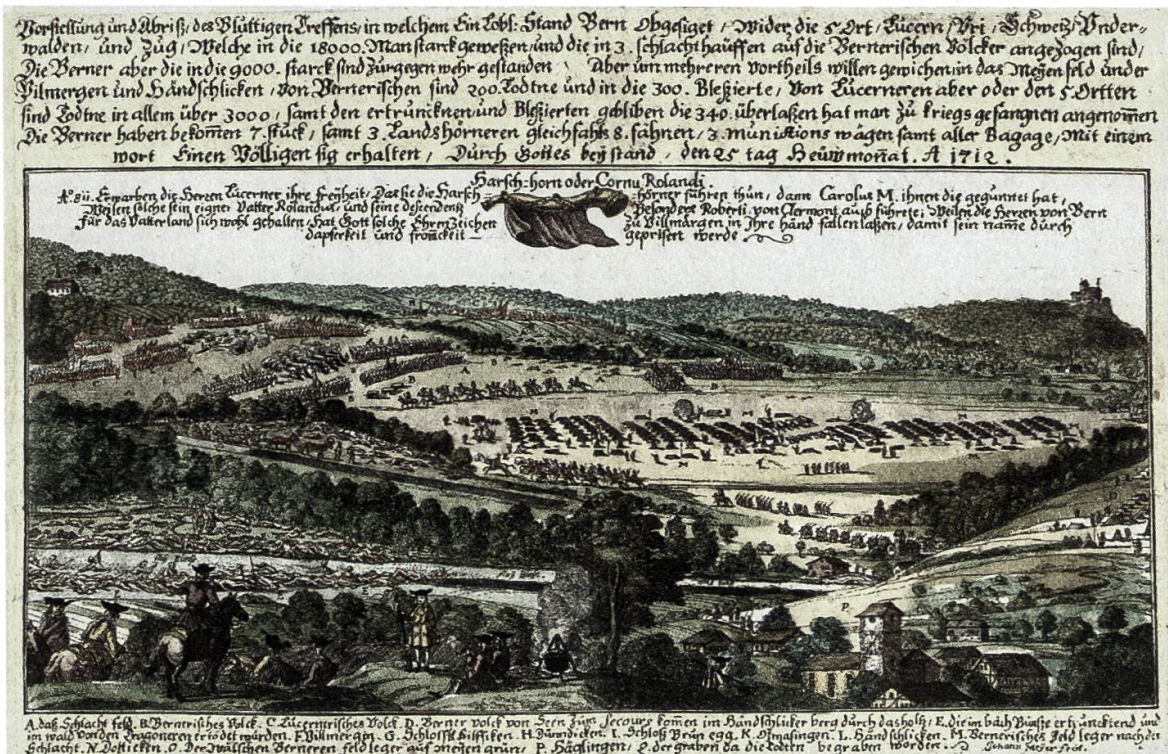 Vorstellung und Abriß, des Bluttigen Treffens, in welchem Ein Lobl: Stand Bern Obgesiget, Wider die 5 Ort, Lucern, Vri, Schweiz, Vnder-
walden, und Zug, Welche in die 18000. Man starck geweßen, und die in 3. schlacht hauffen auf die Bernerischen Völcker angezogen sind,
Die Berner aber die in die 9000. starck sind zur gegen wehr gestanden, Aber um mehreren vortheils willen gewichen in das Meyenfeld under
Vilmergen und Händschlicken, von Bernerischen sind 200. Todtne und in die 300. Bleßierte, von Lucerneren aber oder den 5. Ortten
sind Todtne in allem über 3000, samt den ertruncknen und Bleßierten gebliben die 340. überlaßen hat man zu kriegs gefangnen angenom̄en
Die Berner haben bekom̄en 7. stuck, samt 3. Landshörneren gleichfahls 8. fahnen, 3. munitions wägen samt aller Bagage, Mit einem
wort Einen Völligen sig erhalten, Durch Gottes beystand, den 25 tag Heüwmonat. A 1712.
Harsch-horn oder Cornu Rolandi.
Aº. 811. Erwarben die Herren Lucerner ihre freÿheit, Das sie die Harsch-hörner führen thun, dann Carolus M. ihnen die gegünnet hat,
Weilen solche sein eigner Vatter Rolandus, und seine descendens Besonders Roberti von Clermont auch führete; Weilen die Herren von Bern
Für das Vatterland sich wohl gehalten, Hat Gott solche Ehren Zeichen zu Villmärgen in Ihre händ fallen laßen, damit sein name durch
dapferkeit und from̄ckeit geprisen werde
A. daß Schlacht feld. B. Bernerisches Volck. C. Lucernerisches Volck. D. Berner volck von Seen zum Secours kom̄en im Händschlicker berg durch das holtz, E. die im bach Bünste ertruncktend und
im wald von den Dragoneren ertödet wurden. F. Vilmergen. G. Schloss Hilffiken. H. Dürndicken. I. Schloß Brun egg. K. Otmasingen. L. Händschlicken. M. Bernerisches Feld leger nach der
Schlacht. N. Dotticken. O. Der Wälschen Berneren feld leger auf Meyen grün, P. Hägglingen, Q. der graben da die Todten begraben worden. Johan